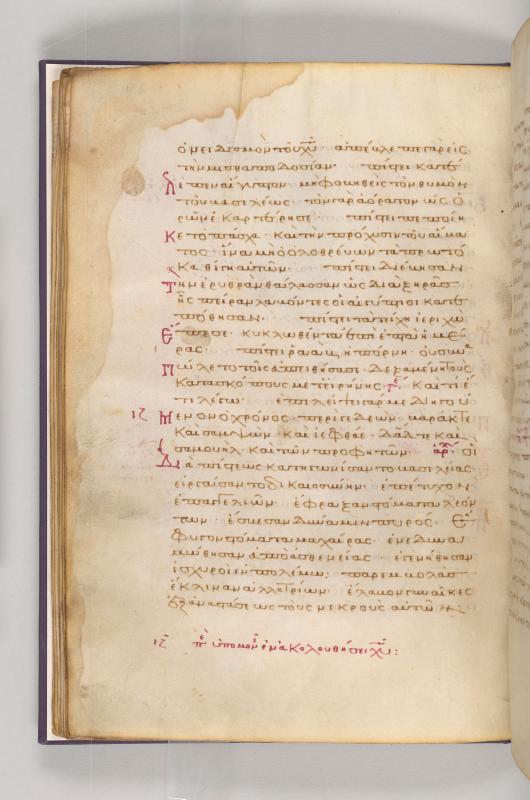 ὀνειδισμὸν τοῦ χῡ ἀπέβλεπε γὰρ εἰς
τὴν μισθαποδοσίαν· πίστει κατέ
λιπεν αἴγυπτον· μὴ φοβηθεὶς τὸν θυμὸν
τοῦ βασιλέως· τὸν γὰρ ἀόρατον ὡς ὁ
ρῶν ἐκαρτέρησε· πίστει πεποίη
κε τὸ πάσχα· καὶ τὴν πρόχυσιν τοῦ αἵμα
τος· ἵνα μὴ ὁ ὀλοθρεύων τὰ πρωτό
κα θίγη αὐτῶν· πίστει διέβησαν
τὴν ἐρυθρὰν θάλασσαν ὡς διὰ ξηρᾶσ
ἧς πεῖραν λαβόντες οἱ αἰγύπτιοι κατε
πόθησαν· πίστει τὰ τείχη ἱεριχὼ
ἔπεσε· κυκλωθέντα ἐπὶ ἑπτὰ ἡμέ
ρας· πίστει ῥαὰβ ἡ πόρνη οὐ συνα
πώλετο τοῖς ἀπειθήσασι· δεξαμένη τοὺς
κατασκόπους μετ' εἰρήνης· καὶ τί ἔ
τι λέγω· ἐπιλείπει γάρ με διηγού
ιζ μενον ὁ χρόνος· περὶ γεδεών· βαράκ τε
καὶ σαμψών· καὶ ἰεφθάε· δᾱδ τε καὶ
σαμουὴλ καὶ τῶν προφητῶν· ἀρχ οἱ
διὰ πίστεως κατηγωνίσαντο βασιλείας
εἰργάσαντο δικαιοσύνην· ἐπέτυχον
ἐπαγγελιῶν· ἔφραξαν στόματα λεόν
των· ἔσβεσαν δύναμιν πυρός· ἔ
φυγον στόματα μαχαίρας· ἐνεδυνα
μώθησαν ἀπὸ ἀσθενείας· ἐγενήθησαν
ἰσχυροὶ ἐν πολέμω· παρεμβολὰσ
ἔκλιναν ἀλλοτρίων· ἔλαβον γυναῖκες
ἐξ ἀναστάσεως τοὺς νεκροὺς αὐτῶν
ιζ πε ὑπομονῆς ἐν ἀκολουθήσει χῡ: